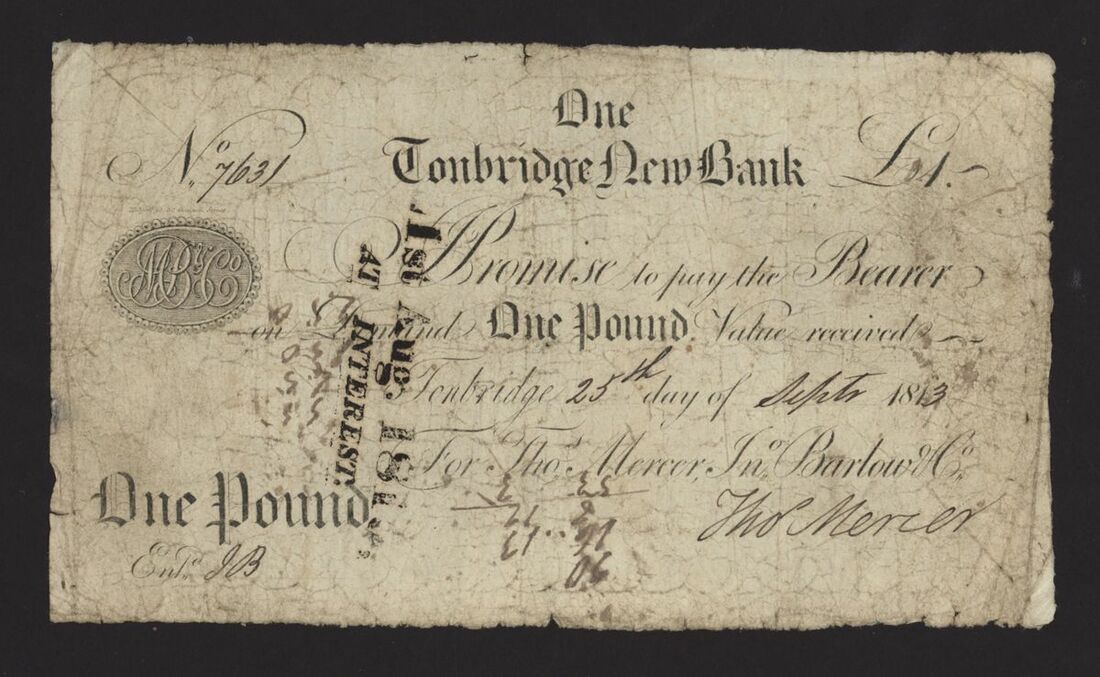 One
No. 7631 Tonbridge New Bank £1.
I Promise to pay the Bearer
on Demand One Pound Value received
Tonbridge 25th day of Septr 1813
For Thos. Mercer, Jno. Barlow & Co.
One Pound
Thos Mercer
Entd. JB
1st Aug. 181
AT INTEREST.